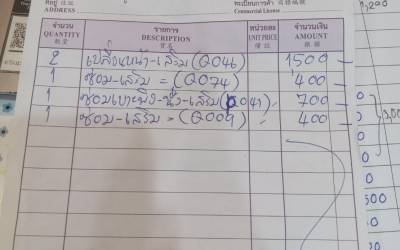 ที่อยู่ 住址 ทะเบียนการค้า 商務編號
ADDRESS Commercial License
จำนวน รายการ หน่วยละ จำนวนเงิน
QUANTITY DESCRIPTION UNIT PRICE AMOUNT
數量 貨名 價註 銀額
2 เปลี่ยนหน้า-เสริม (Q046) 1500 -
1 ซ่อม-เสริม = (Q074) 400 -
1 -เสริม (041) 700 -
1 ซ่อม-เสริม = (Q009) 400 -
1,290